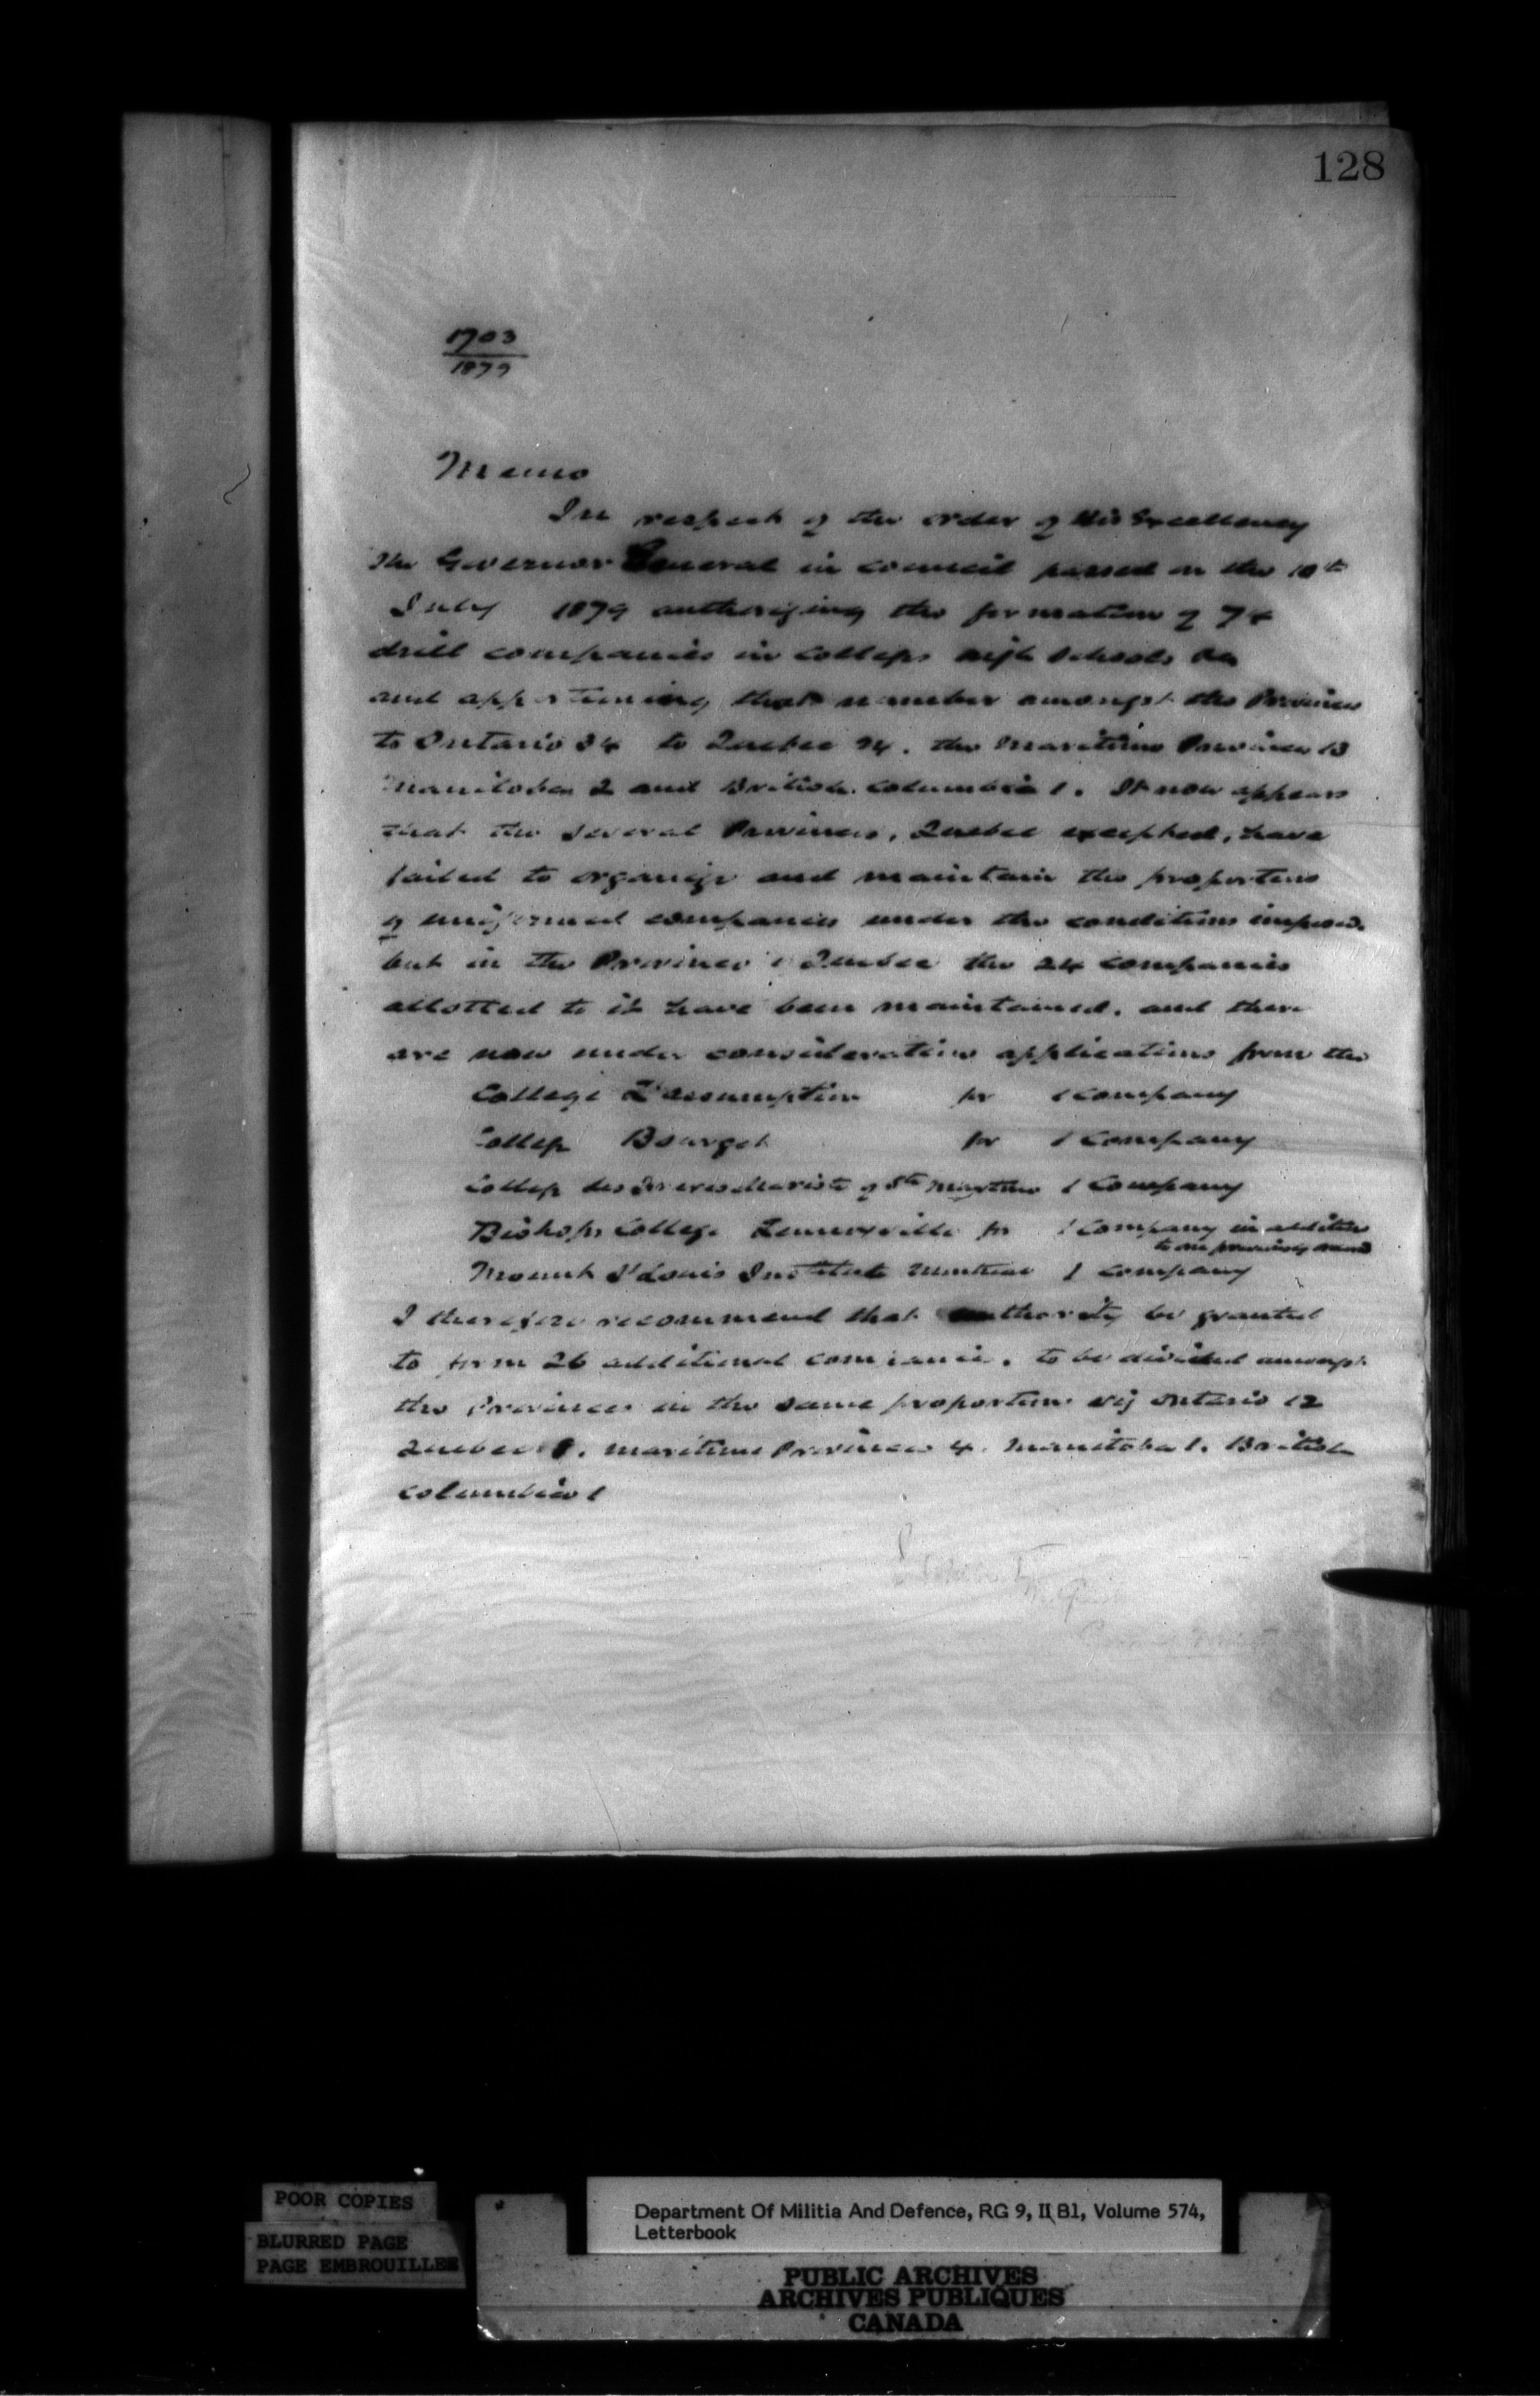 128
1703
1879
Memo
In respect of the order of His Excellency
the Governor General in council passed on the 10th
July 1879 authorizing the formation of 74
drill companies in Colleges high schools &c
and apportioning that number amongst the Provinces
to Ontario 34 to Quebec 24. the Maritime Provinces 13
Manitoba 2 and British Columbia 1. It now appears
that the several Provinces, Quebec excepted, have
failed to organize and maintain the proportions
of uniformed companies under the conditions imposed.
but in the Province of Quebec the 24 companies
allotted to it have been maintained. and there
are now under consideration applications from the
College L'assumption for 1 Company
College Bourget for 1 Company
College des freres Marists of 1 Company
Bishops College Lennoxville for 1 Company in addition
to one previously
Mount St Louis Institute Montreal 1 Company
I therefore recommend that authority be granted
to form 26 additional companies. to be divided amongst
the Provinces in the same proportions viz Ontario 12
Quebec 8. Maritime Provinces 4. Manitoba 1. British
Columbia 1
POOR COPIES
BLURRED PAGE
PAGE EMBROUILLEE
Department Of Militia And Defence, RG 9, II B1, Volume 574,
Letterbook
PUBLIC ARCHIVES
ARCHIVES PUBLIQUES
CANADA